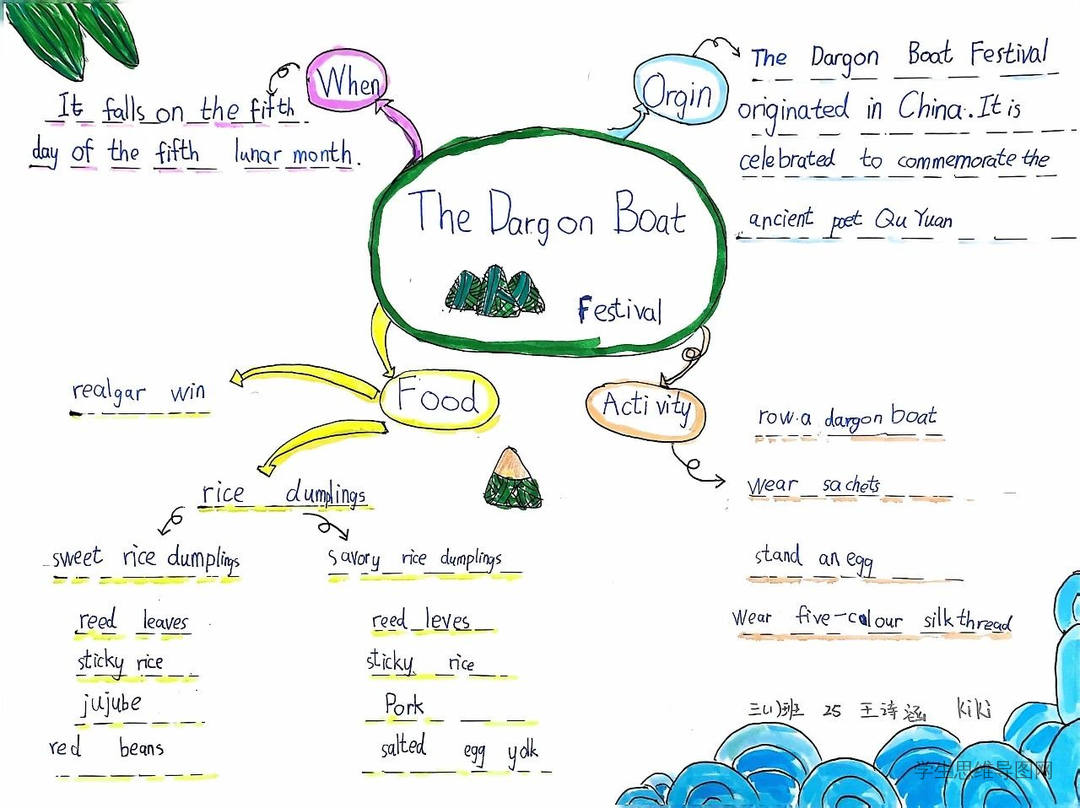 The Dargon Boat
Festival
When
It falls on the fifth
day of the fifth lunar month.
Orgin
The Dargon Boat Festival
originated in China. It is
celebrated to commemorate the
ancient poet Qu Yuan
Food
realgar win
rice dumplings
sweet rice dumplings
reed leaves
sticky rice
jujube
red beans
savory rice dumplings
reed leves
sticky rice
Pork
salted egg yolk
Activity
row a dargon boat
wear sachets
stand an egg
Wear five-colour silk thread
三(1)班 25 王诗涵 KiKi
学生思维导图网